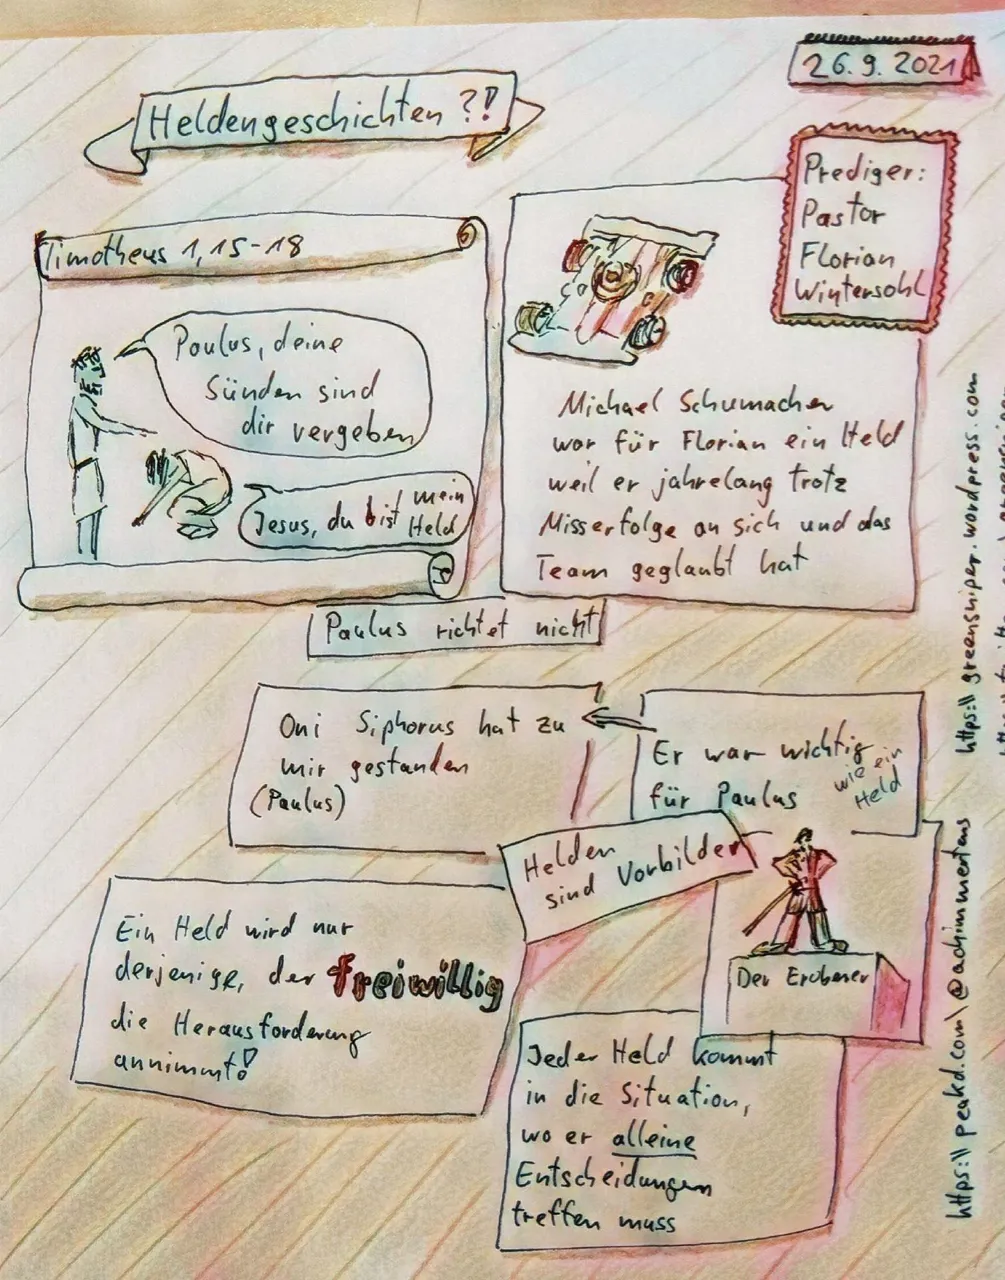 26.9.2021
Heldengeschichten ?!
Prediger:
Pastor
Florian
Wintersohl
Timotheus 1,15-18
Paulus, deine
Sünden sind
dir vergeben
Jesus, du bist mein
Held
Michael Schumacher
war für Florian ein Held
weil er jahrelang trotz
Misserfolge an sich und das
Team geglaubt hat
Paulus richtet nicht
Oni Siphorus hat zu
mir gestanden
(Paulus)
Er war wichtig
für Paulus
wie ein
Held
Helden
sind Vorbilder
Der Eroberer
Ein Held wird nur
derjenige, der freiwillig
die Herausforderung
annimmt!
Jeder Held kommt
in die Situation,
wo er alleine
Entscheidungen
treffen muss
https:// greensniper.wordpress.com
https:// peakd.com/@achimmertens